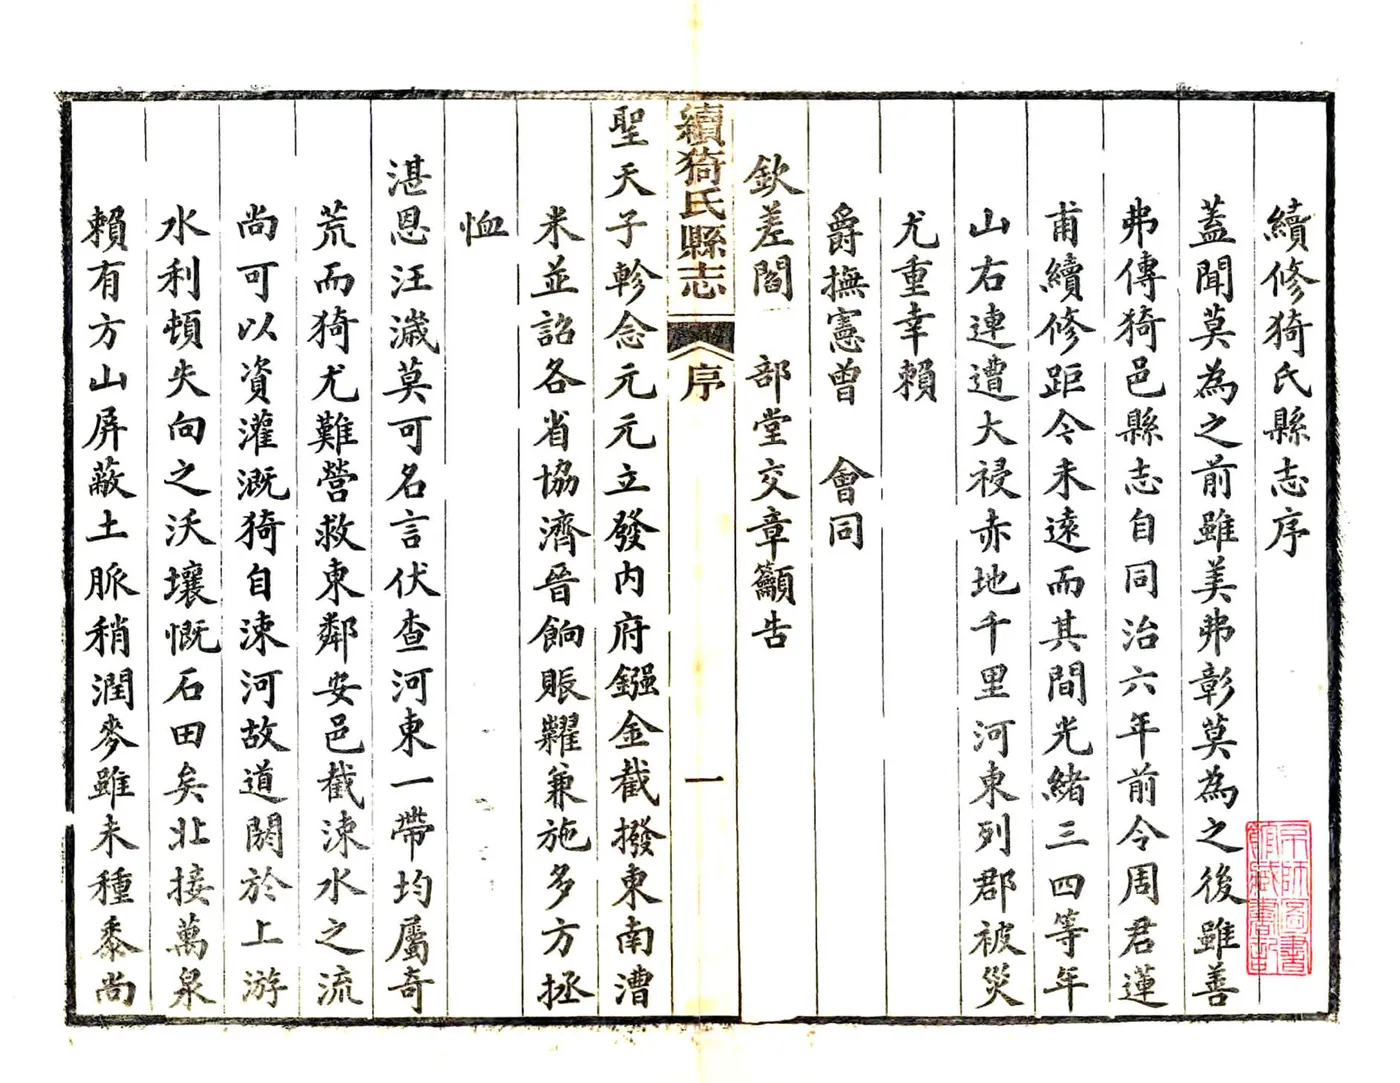 續修猗氏縣志序
蓋聞莫為之前雖美弗彰莫為之後雖善
弗傳猗邑縣志自同治六年前令周君蓮
甫續修距今未遠而其間光緒三四等年
山右連遭大祲赤地千里河東列郡被災
尤重幸賴
爵撫憲曾 會同
欽差閻 部堂交章籲告
續猗氏縣志 序 一
聖天子軫念元元立發內府鏹金截撥東南漕
米並詔各省協濟晉餉賑糶兼施多方拯
恤
湛恩汪濊莫可名言伏查河東一帶均屬奇
荒而猗尤難營救東鄰安邑截涑水之流
尚可以資灌溉猗自涑河故道閼於上游
水利頓失向之沃壤慨石田矣北接萬泉
賴有方山屏蔽土脈稍潤麥雖未種黍尚
京師圖書
館藏書記